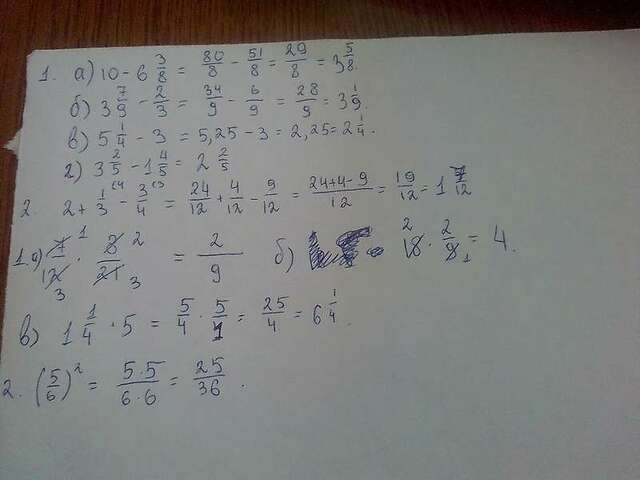 1. а) 10 - 6 3/8 = 80/8 - 51/8 = 29/8 = 3 5/8.
б) 3 7/9 - 2/3 = 34/9 - 6/9 = 28/9 = 3 1/9.
в) 5 1/4 - 3 = 5,25 - 3 = 2,25 = 2 1/4.
г) 3 2/5 - 1 4/5 = 2 2/5
2. 2 + 1/3 - 3/4 = 24/12 + 4/12 - 9/12 = 24+4-9/12 = 19/12 = 1 7/12
1. а) 7/12 · 8/21 = 2/9 б) 18 · 2/9 = 4.
в) 1 1/4 · 5 = 5/4 · 5/1 = 25/4 = 6 1/4.
2. (5/6)² = 5·5/6·6 = 25/36.